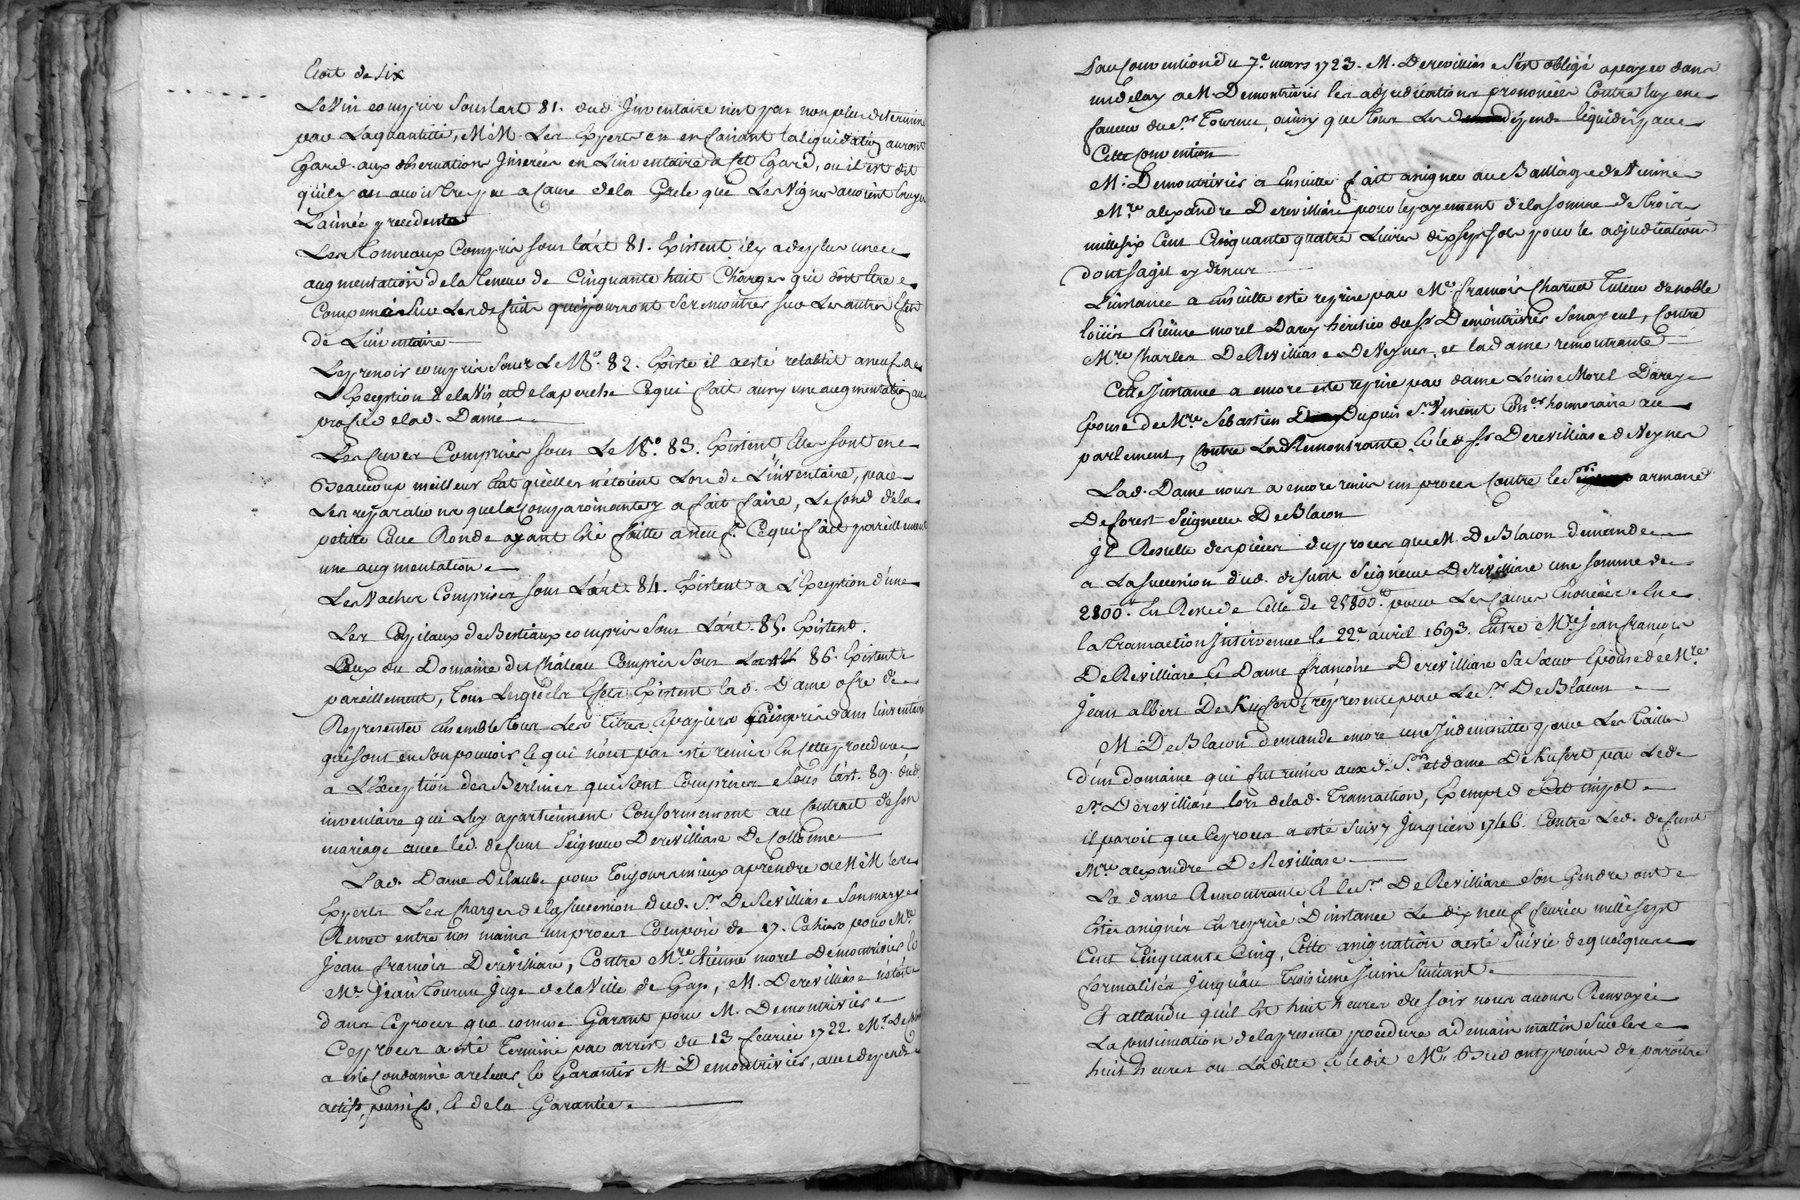 Etoit de six
Le Vin compris sous l'art 81. dud. Inventaire n'est pas non plus determiné
par La quantité, M.M. Les Experts en en faisant la liquidation auront
Egard aux observations Inserées en L'inventaire a set Egard, ou il est dit
qu'il y en avoit tres peu a Cause de la Grele que Les Vignes avoient
L'année precedente
Les Tonneaux Compris sous l'art 81. Existent il y a de plus une
augmentation de la Teneue de Cinquante huit Charges qui doit Etre
Compensé sur Les deficits qui pourront se remontrer sur Les autres Effets
de L'inventaire
Le pressoir compris sous Le N.º 82. Existe il a esté retablit a neuf a
L'Exception de la Vis et de la perche Ce qui fait aussy une augmentation au
profit de lad. Dame
Les Cuves Comprises sous Le N.º 83. Existent Elles sont en
Beaucoup meilleur Etat qu'elles n'étoient Lors de L'inventaire, par
Les reparations que la Comparoissante y a fait faire, Le fond de la
petite Cuve Ronde ayant Eté faitte a neuf. Ce qui fait pareillement
une augmentation
Les Vaches Comprises sous L'art. 84. Existent a L'Exception d'une
Les Capitaux de Bestiaux compris sous L'art. 85. Existent.
Ceux du Domaine du Château Compris sous L'art 86. Existent
pareillement, Tous Lesquels Effets Existent lad. Dame ofre de
Representer Ensemble tous Les titres & papiers Compris dans l'inventaire
qui sont en son pouvoir, & qui n'ont pas esté remis En cette procedure
a L'Exception des Berlines qui sont Comprises sous l'art. 89. dud.
inventaire qui Luy apartiennent Conformement au Contrait de son
mariage avec led. defunt Seigneur Derevilliase De
Lad. Dame Delaube pour Toujours mieux aprendre a M.M. les
Experts Les Charges de la succession dud. S.r DeRevilliase Son mary
Remet entre nos mains un proces Composé de 17. Cahiers pour M.re
Jean françois Derevilliase, Contre M.re Etienne morel Demontrivies &
M.e Jean Tourniu Juge de la Ville de Gap, M. Derevilliase n'étoit
dans Ce proces que comme Garant pour M. Demontrivies
Ce proces a esté Terminé par arrest du 13 fevrier 1722. M.r De
a esté Condamné a relever & Garantir M. Demontrivies, avec depends
actifs, passifs, & de la Garantie.
Par Convention du 7.e mars 1723. M. Derevilliase s'est obligé a payer dans
un delay a M. Demontrivies les adjudications prononcées Contre luy en
faveur du S.r Tourniu, ainsy que tous Les depends liquidés par
Cette Convention
M. Demontrivies a Ensuitte fait assigner au Bailliage de Vienne
M.re alexandre Derevilliase pour le payement de la somme de trois
mille six Cent Cinquante quatre Livres dix sept sols pour les adjudications
dont s'agit cy dessus
L'instance a Ensuitte esté reprise par M.e françois Charvet Tuteur de noble
loüis Etienne morel Darcy héritier du s.r Demontrivies Son ayeul, Contre
M.re Charles DeRevilliase DeVeynes, et la dame remontrante
Cette Instance a encore esté reprise par dame Louise Morel Darcy
Epouse de M.re Sebastien Dupuis S.t Vincent Con.er honnoraire au
parlement, Contre Lad. Remontrante, & led. S.r Derevilliase de Veynes
Lad. Dame nous a encore remis un proces Contre le S.r armand
De forest Seigneur De Blacon
Il Resulte des pieces du proces que M. De Blacon demande
a La succession dud. defunt Seigneur Derevilliase une somme de
2800.# En Reste de Celle de 25800.# pour Les Causes Enoncées En
la transaction Intervenue le 22.e avril 1693. Entre M.re Jean françois
DeRevilliase Et Dame françoise Derevilliase Sa Sœur Epouse de M.re
Jean albert De representé par Led. S.r De Blacon
M. De Blacon demande encore une Indemnitté pour Les Tailles
d'un domaine qui fut remis aux d. S.r et dame De par Led.
S.r Derevilliase lors de lad. Transaction, Exempt de Cet impot
Il paroit que Ce proces a esté suivy Jusqu'en 1746. Contre Led. defunt
M.re alexandre DeRevilliase
La dame Remontrante & le S.r DeRevilliase Son Gendre ont
Etés assignés En reprise D'instance Le dix neuf fevrier mille sept
Cent Cinquante Cinq, Cette assignation a esté Suivie de quelques
formalités Jusqu'au Troisieme Juin Suivant
Et attendu qu'il Est huit heures du soir nous avons Renvoyé
La Continuation de la presente procedure a demain mattin sur les
huit heures ou Laditte, & ledit M.e ont promis de paroitre